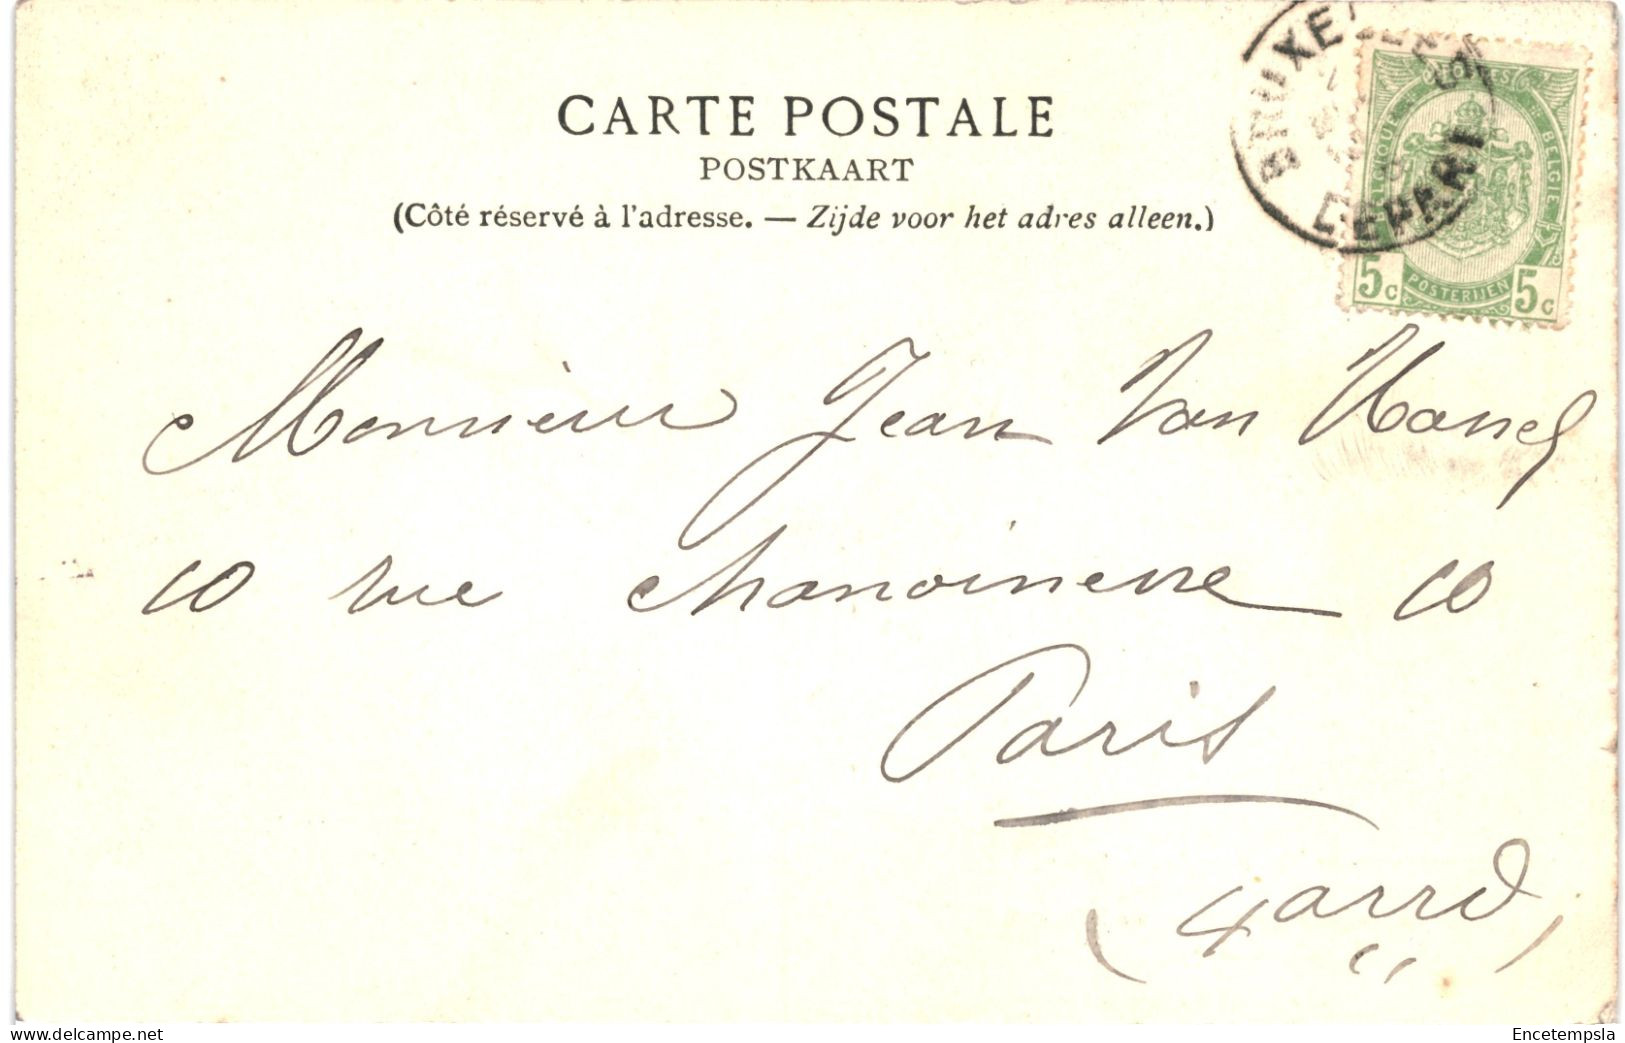 CARTE POSTALE
POSTKAART
(Côté réservé à l'adresse. — Zijde voor het adres alleen.)
BRUXELLES
DEPART
POSTES
BELGIQUE
BELGIE
5c POSTERIJEN 5c
Monsieur Jean Van
10 rue Chanoinesse 10
Paris
(4 arrd)
Encetempsla